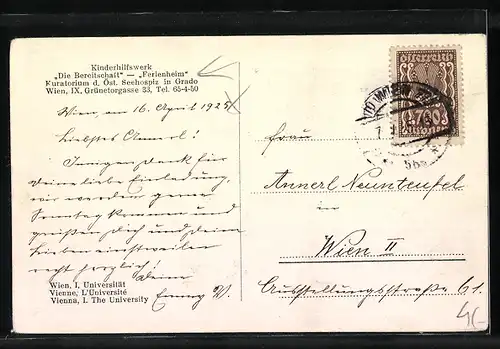 Kinderhilfswerk
„Die Bereitschaft" — „Ferienheim"
Kuratorium d. Öst. Seehospiz in Grado
Wien, IX. Grünetorgasse 33, Tel. 65-4-50
Wien, am 16. April 1925
Liebstes Annerl!
Innigen Dank für
Deine liebe Einladung,
wir werden gerne
Sonntag kommen und
grüßen Dich und Deine
Lieben einstweilen
recht herzlich! Deine
Emmy W.
Wien, I. Universität
Vienne, I. L'Université
Vienna, I. The University
WIEN
700
Kronen
Frau
Annerl Neunteufel
in
Wien II
Ausstellungsstraße 61.
4,-